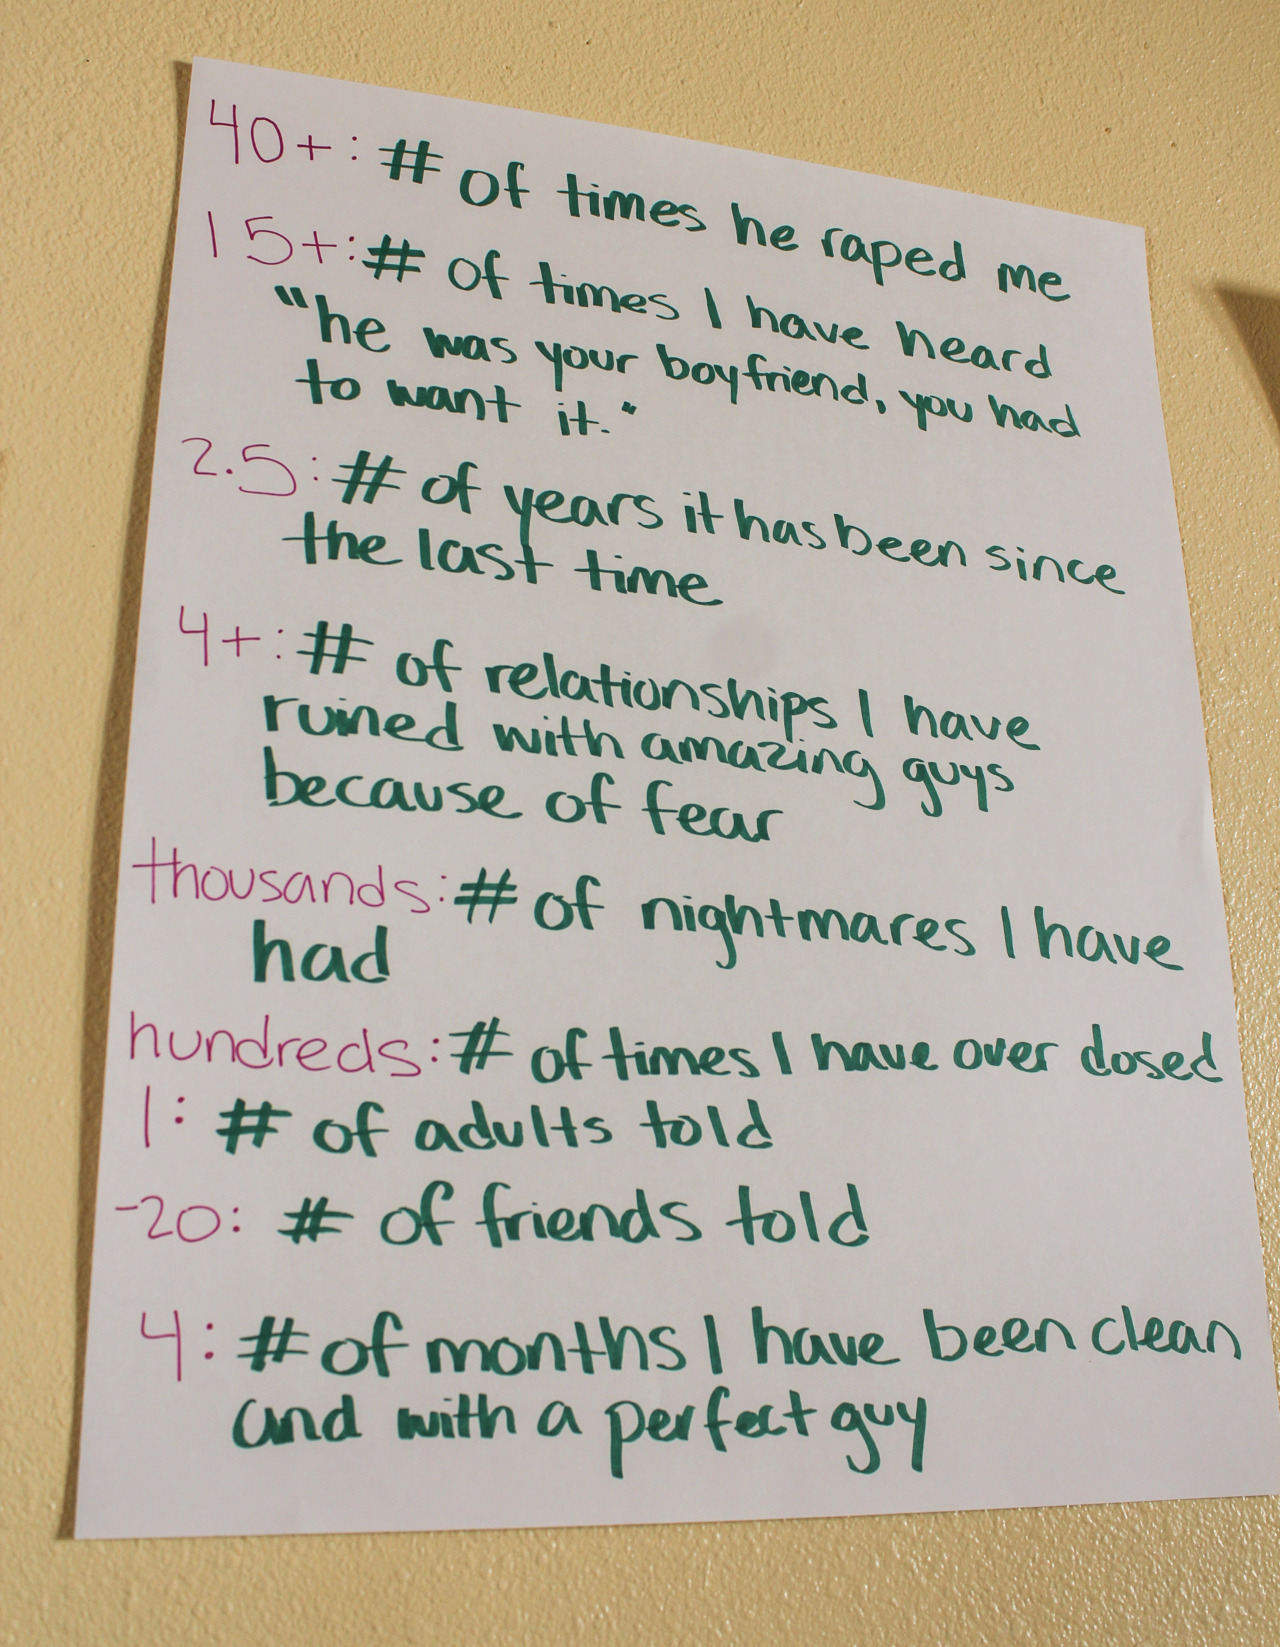 40+: # of times he raped me
15+: # of times I have heard
"he was your boyfriend, you had
to want it."
2.5: # of years it has been since
the last time
4+: # of relationships I have
ruined with amazing guys
because of fear
thousands: # of nightmares I have
had
hundreds: # of times I have over dosed
1: # of adults told
-20: # of friends told
4: # of months I have been clean
and with a perfect guy